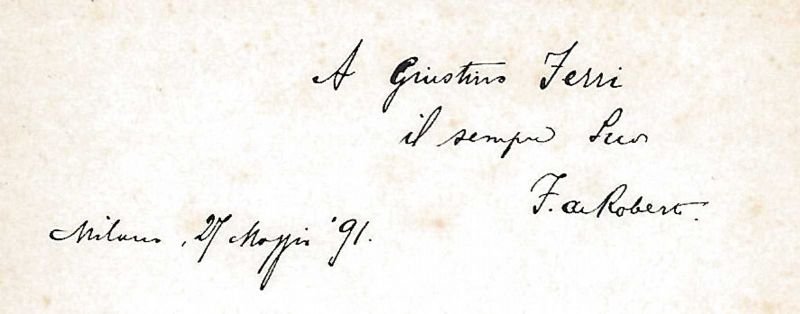 A Giustino Ferri
il sempre Suo
F. de Roberto.
Milano, 27 Maggio '91.